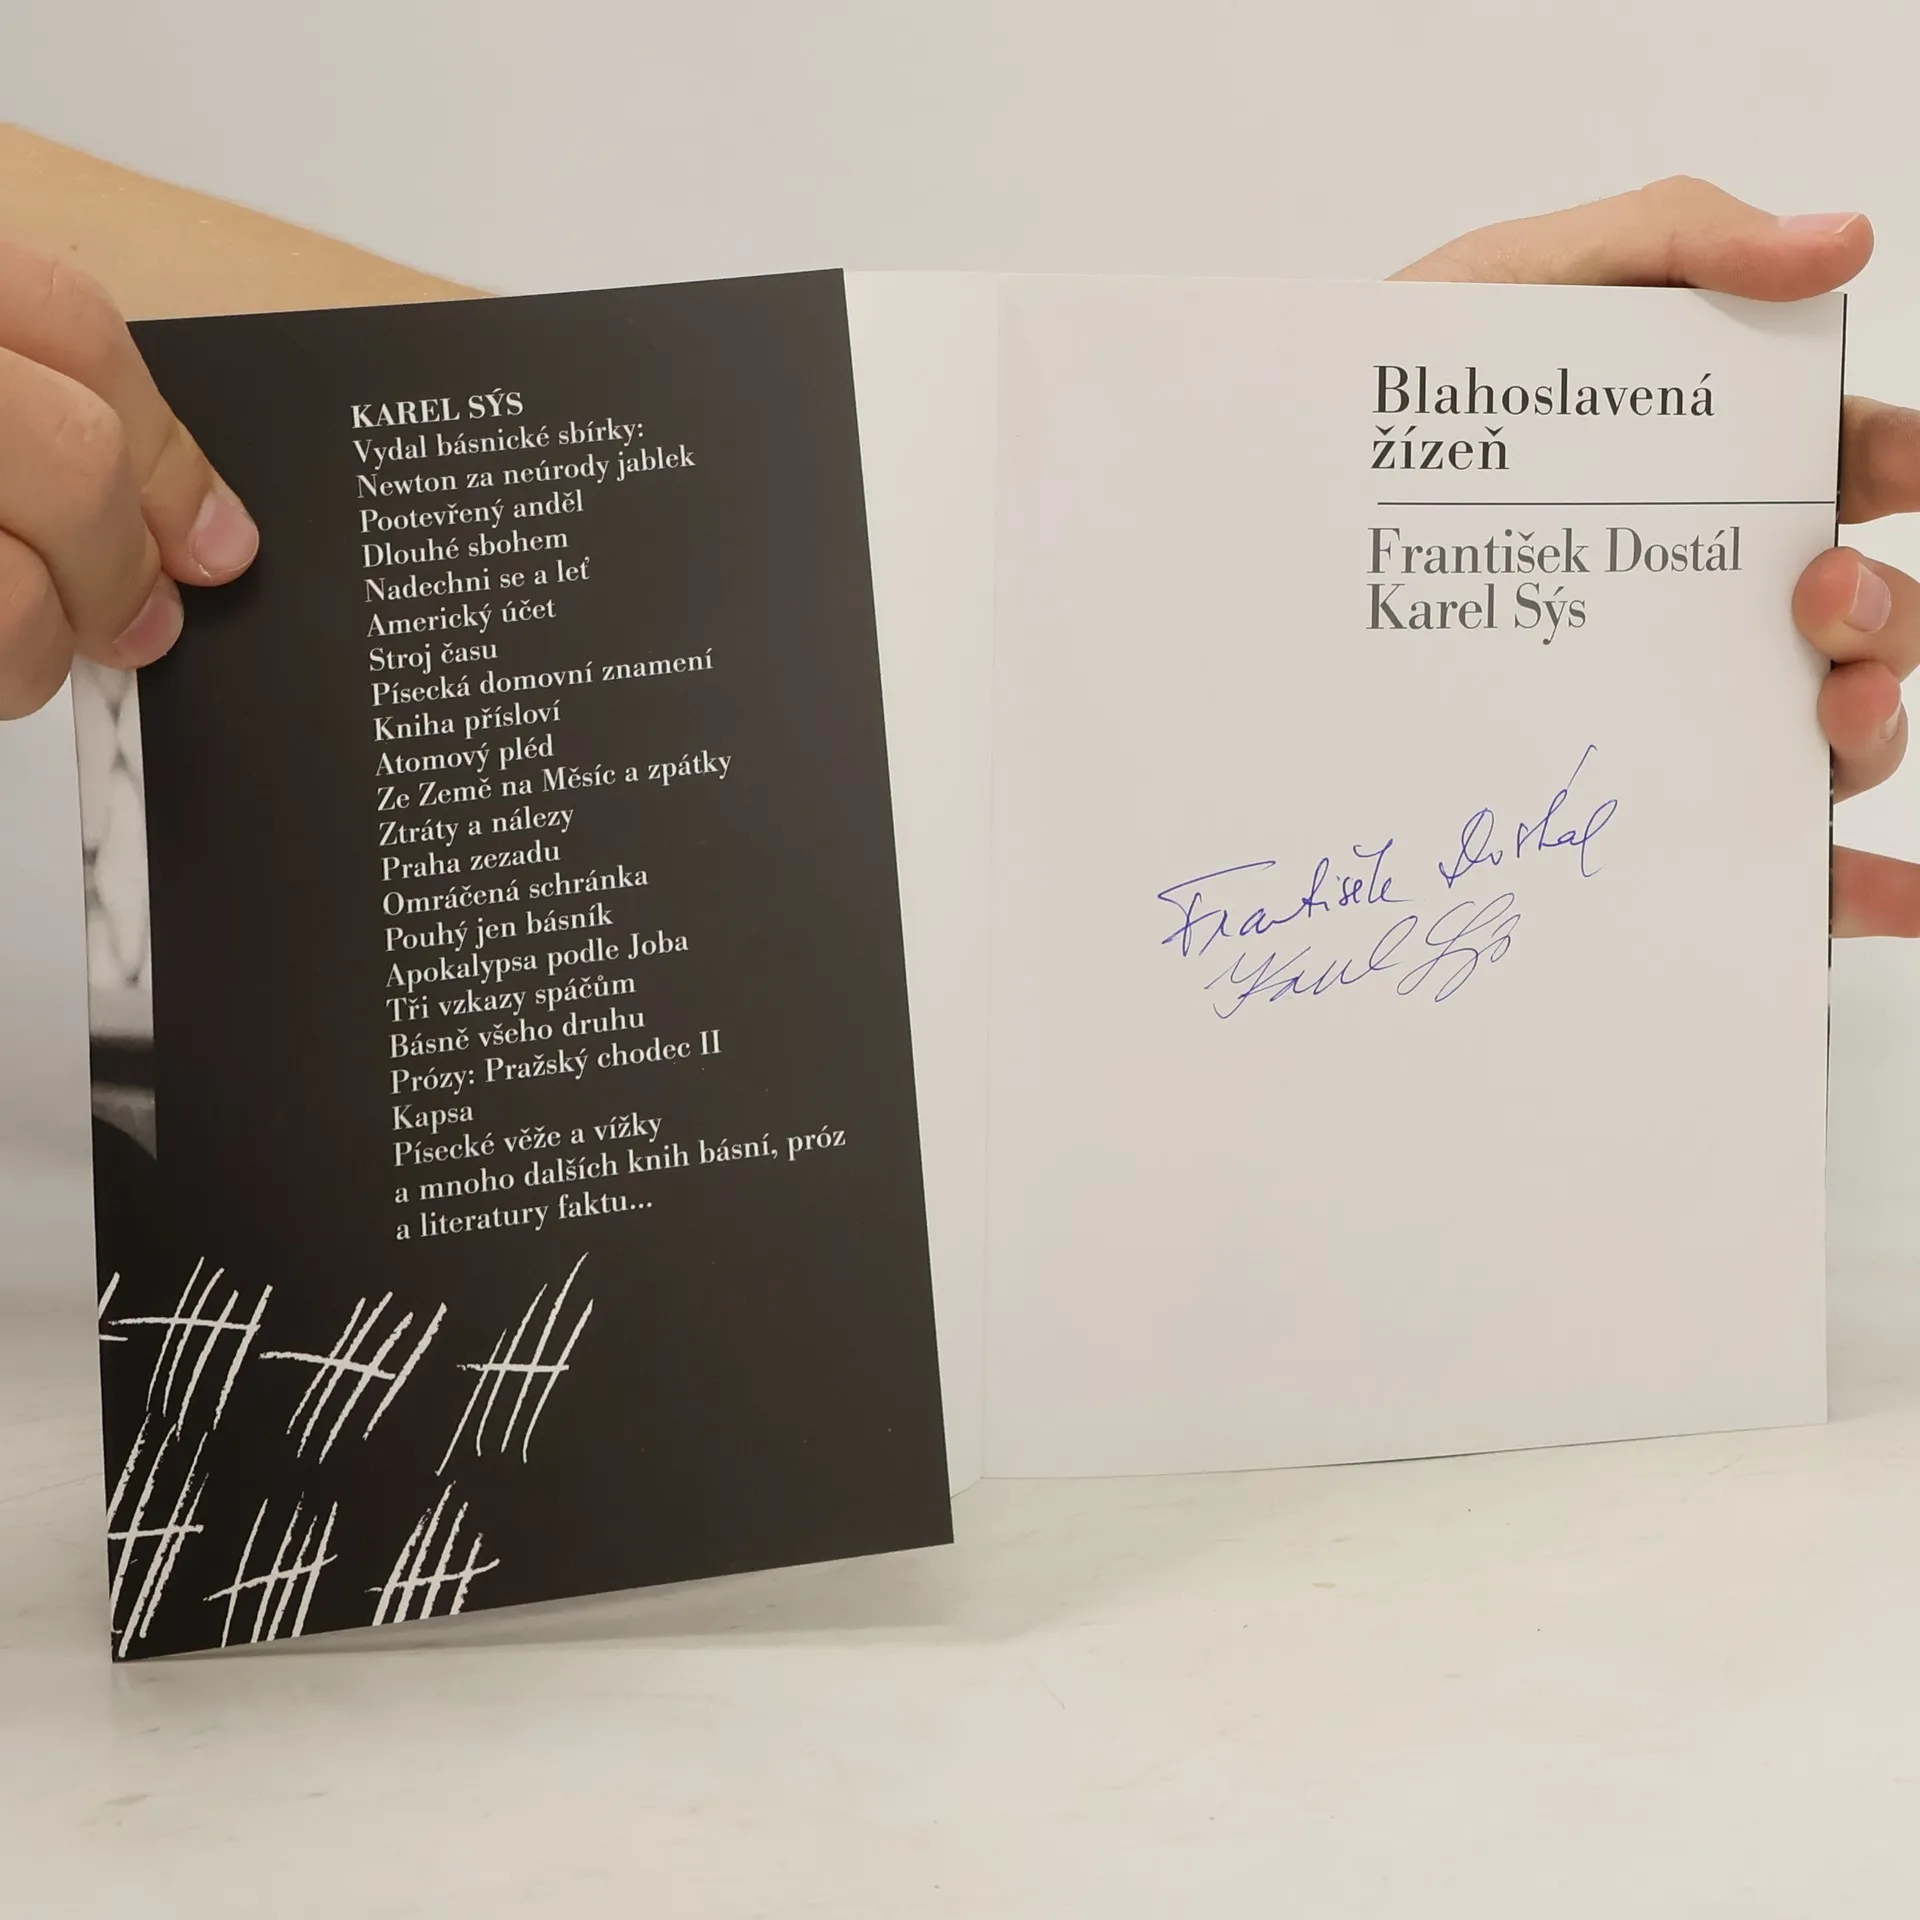 KAREL SÝS
Vydal básnické sbírky:
Newton za neúrody jablek
Pootevřený anděl
Dlouhé sbohem
Nadechni se a leť
Americký účet
Stroj času
Písecká domovní znamení
Kniha přísloví
Atomový pléd
Ze Země na Měsíc a zpátky
Ztráty a nálezy
Praha zezadu
Omráčená schránka
Pouhý jen básník
Apokalypsa podle Joba
Tři vzkazy spáčům
Básně všeho druhu
Prózy: Pražský chodec II
Kapsa
Písecké věže a vížky
a mnoho dalších knih básní, próz
a literatury faktu...
Blahoslavená
žízeň
František Dostál
Karel Sýs
František Dostál
Karel Sýs